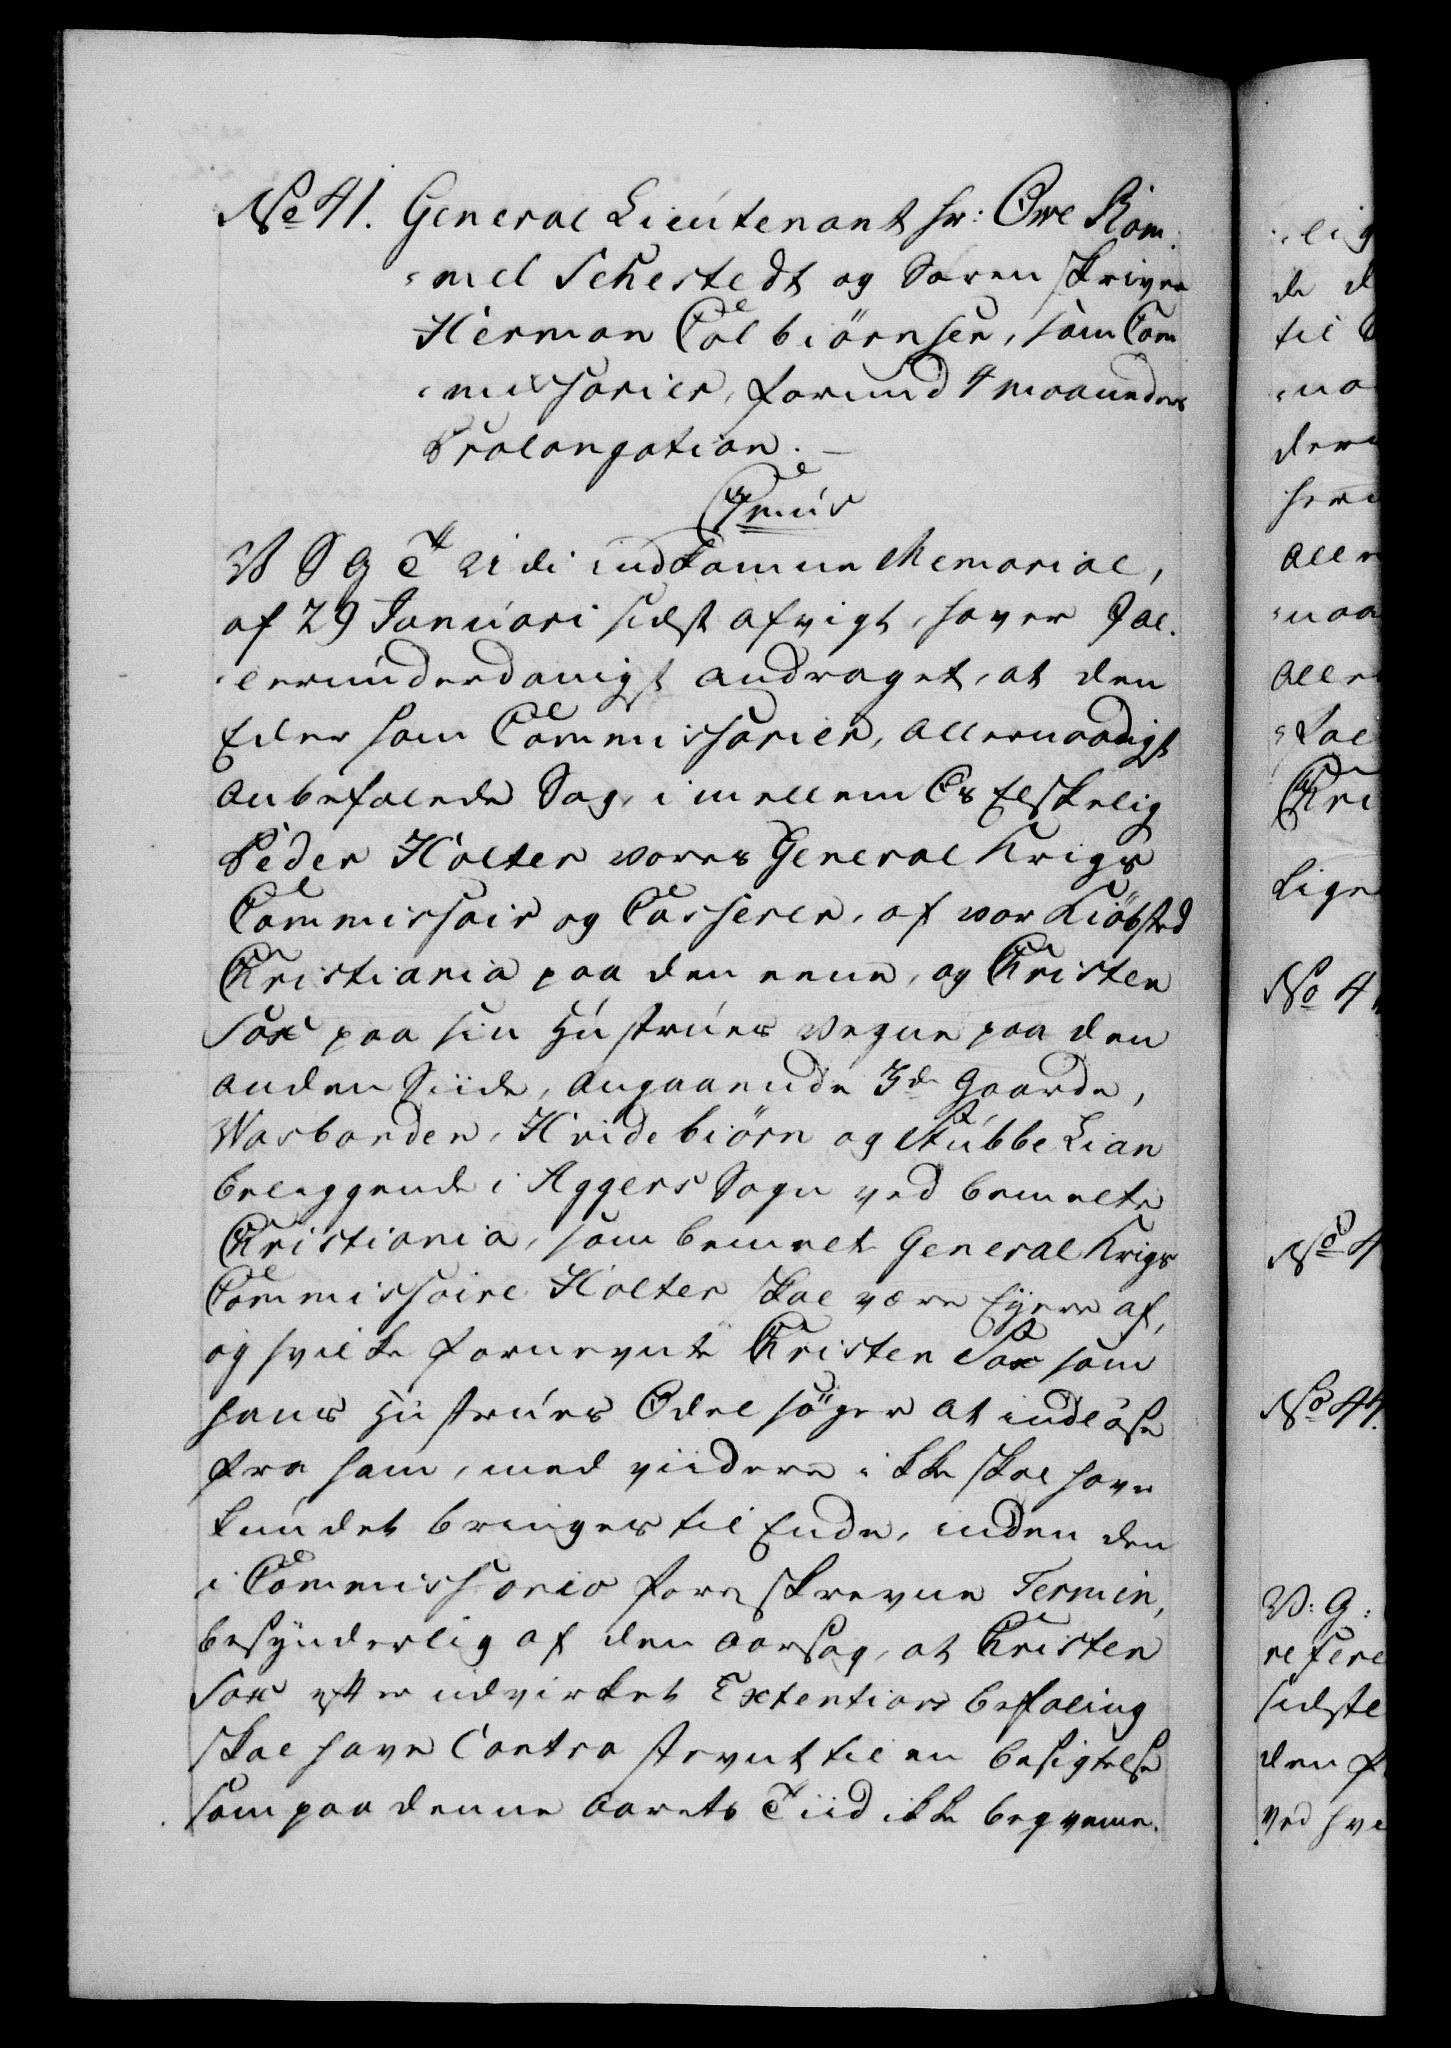 No 41. General Lieutenant hr: Ove Röm¬
¬mel Schestedt og Soren skriver
Herman Colbiörnsen, som Com
¬missarier, forund 4 Maaneders
Prolongation. —
Cmus
V S G T I di indkomne Memorial,
af 29 Januari sidst afvigt, haver I al¬
¬lerunderdanigst andraget, at den
Eder som Commissarier, allernaadigst
anbefalede Sag, imellem Os Elskelig
Peder Holter vores General Krigs
Commissair og Casserer, af vor Kiöbsted
Kristiania paa den eene, og Kristen
Sax paa sin Hustrues Vegne paa den
anden Siide, angaaende 3de Gaarde,
Warbanden, Hvidebiörn og Stubbe Lian
beliggende i Aggers Sogn ved bemelte
Kristiania, som bemelt General Krigs
Commissaire Holter skal være Eyere af,
og hvilke fornevnte Kristen Sax som
hans Hustrues Odel söger at indlöse
fra ham, med viidere ikke skal have
kundet bringes til Ende, inden den
i Commissorio foreskrevne Termin,
besynderlig af den aarsag, at Kristen
Sax efter udvirket Extentions befaling
skal have Contra stevnt til en besigtelse
som paa denne Aarets Tiid ikke beqveme¬
de
til
No 4
No 4
No 44.
V: G:
refere
sidste
den
ved hvi